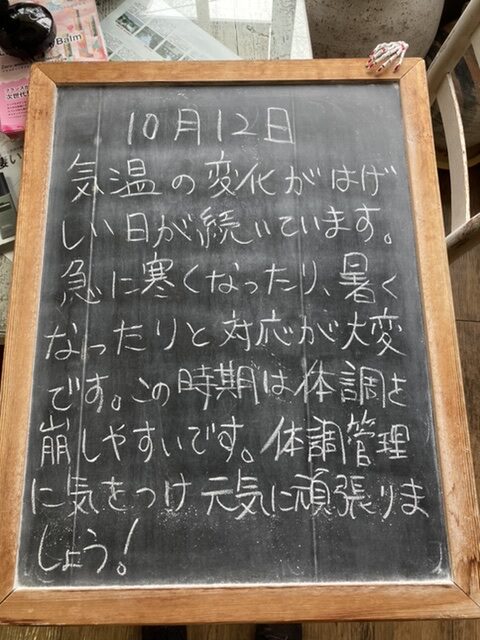 Balm
10月12日
気温の変化がはげ
しい日が続いています。
急に寒くなったり、暑く
なったりと対応が大変
です。この時期は体調を
崩しやすいです。体調管理
に気をつけ元気に頑張りま
しょう!